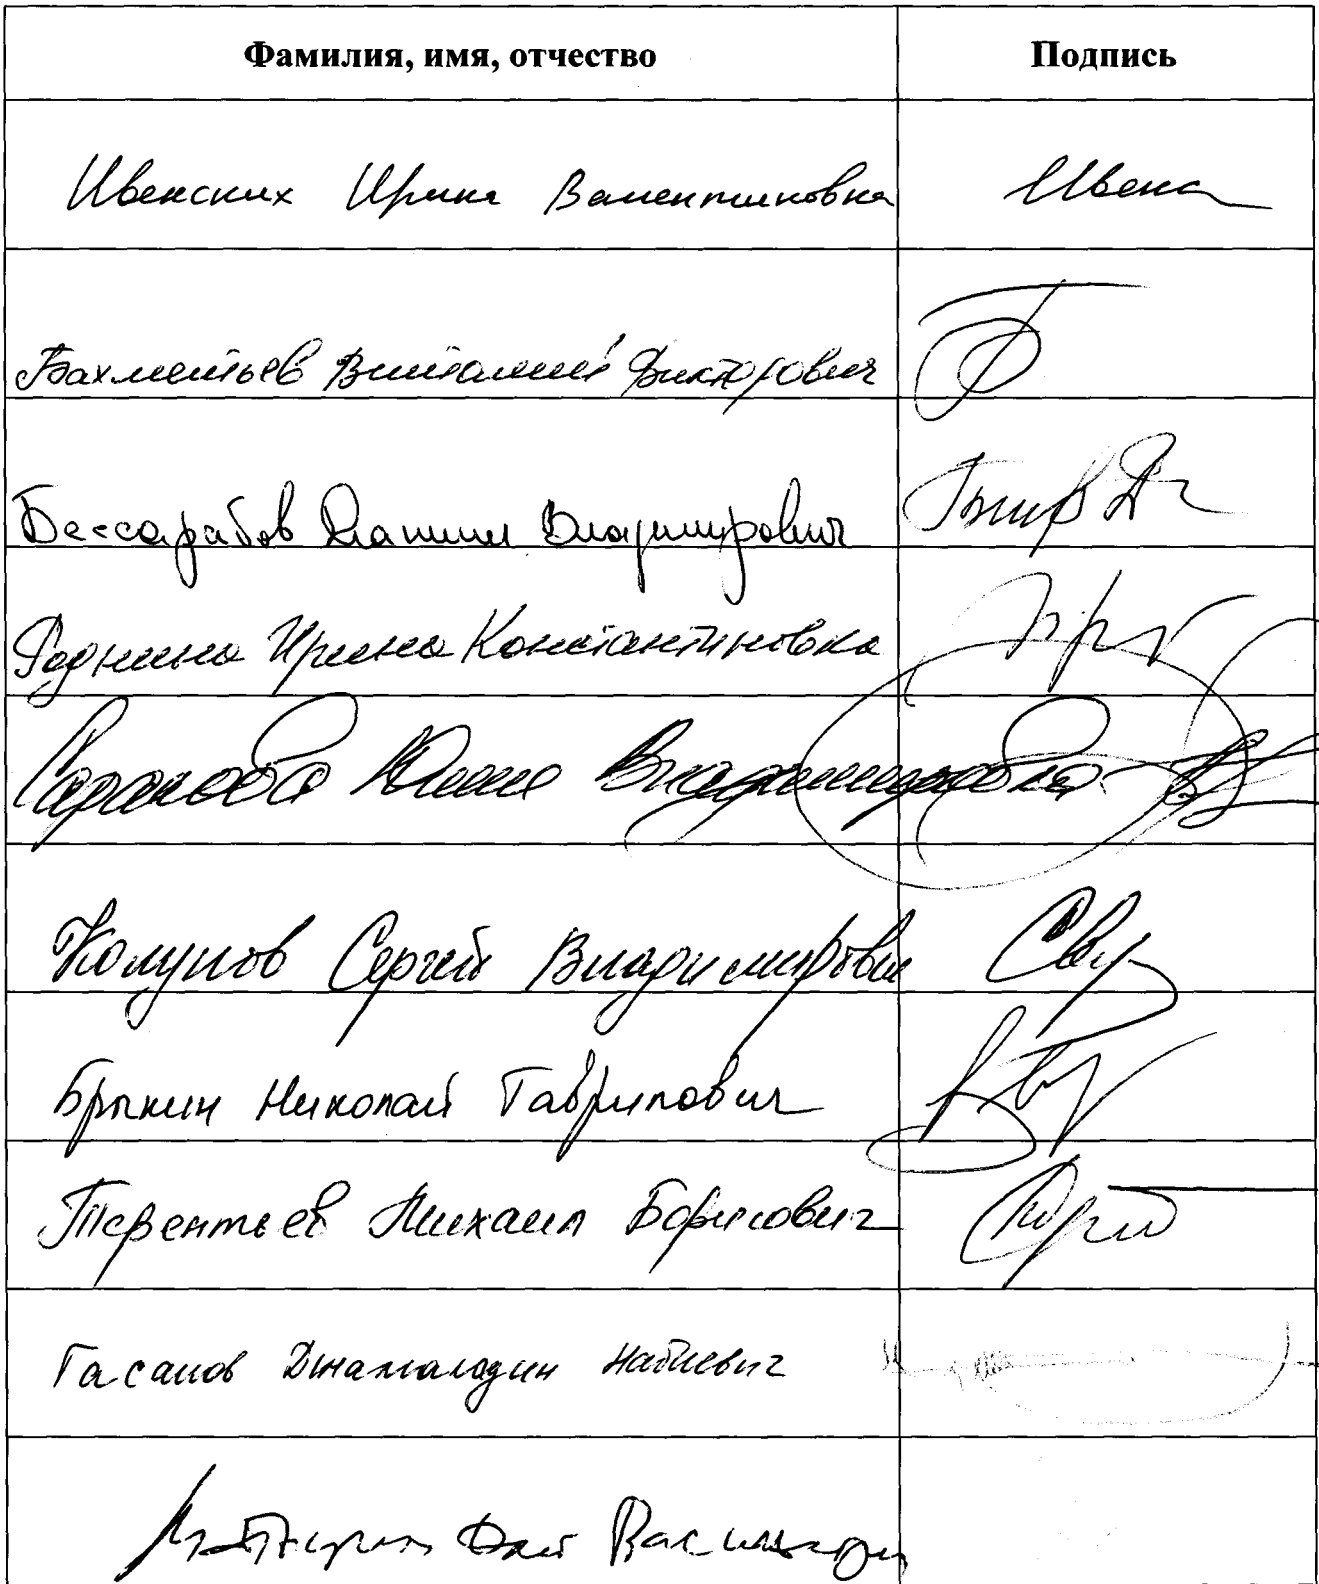 Фамилия, имя, отчество Подпись
Ивенских Ирина Валентиновна Ивенс
Бахметьев Виталий Викторович
Бессарабов Даниил Владимирович
Роднина Ирина Константиновна
Сараноова Юлия Владимировна
Колунов Сергей Владимирович
Брыкин Николай Гаврилович
Терентьев Михаил Борисович
Гасанов Джамаладин Набиевич
Васильевич